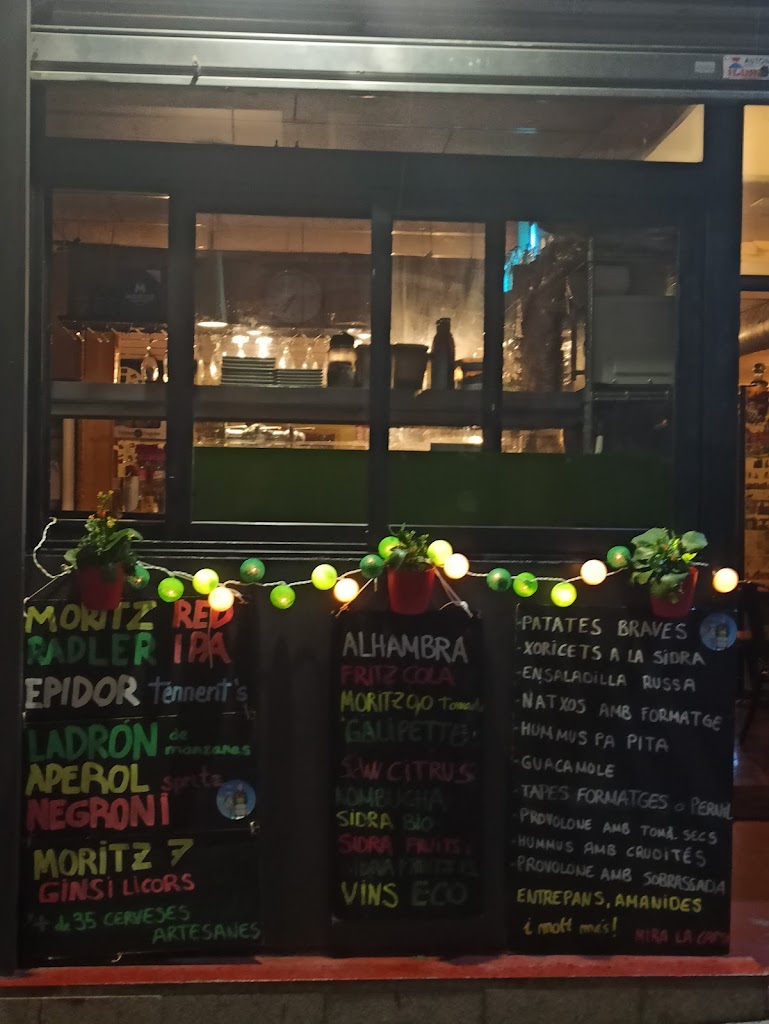 MORITZ RED
RADLER IPA
EPIDOR Tennent's
LADRÓN de
manzanas
APEROL spritz
NEGRONI
MORITZ 7
GINS i LICORS
+ de 35 CERVESES
ARTESANES
ALHAMBRA
FRITZ COLA
MORITZ 0,0
GALIPETTE
CITRUS
KOMBUCHA
SIDRA BIO
SIDRA FRUITS
SIDRA
VINS ECO
-PATATES BRAVES
-XORICETS A LA SIDRA
-ENSALADILLA RUSSA
-NATXOS AMB FORMATGE
-HUMMUS PA PITA
-GUACAMOLE
-TAPES FORMATGES o PERNIL
-PROVOLONE AMB TOMÀ. SECS
-HUMMUS AMB CRUDITÉS
-PROVOLONE AMB SOBRASSADA
ENTREPANS, AMANIDES
i molt més!
MIRA LA